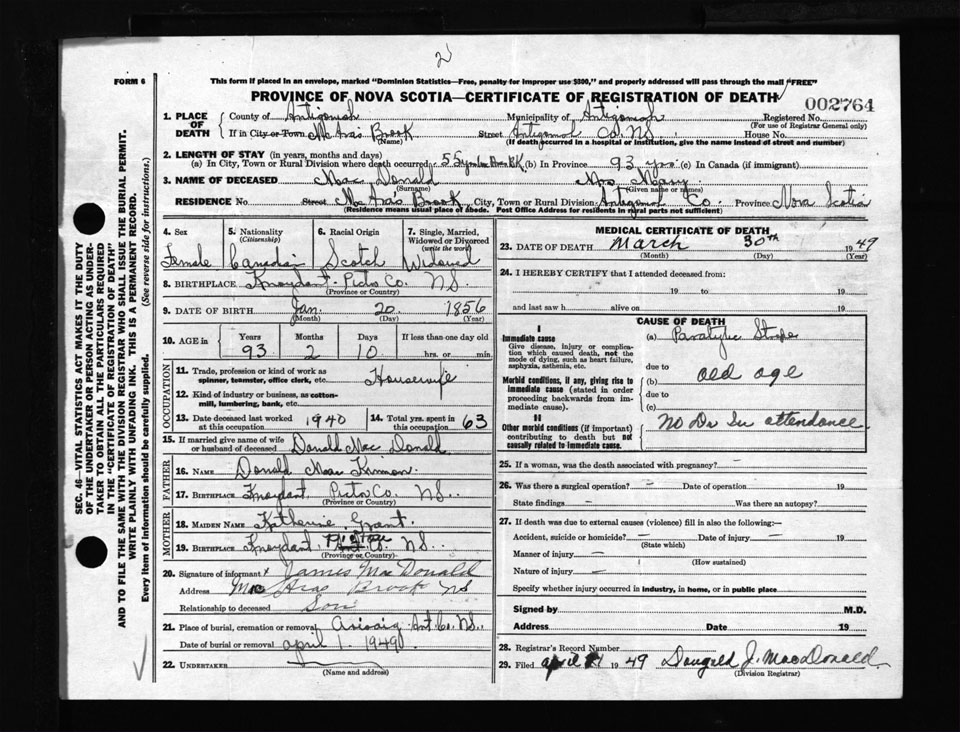 2
FORM 6
This form if placed in an envelope, marked "Dominion Statistics—Free, penalty for improper use $300," and properly addressed will pass through the mail "FREE"
PROVINCE OF NOVA SCOTIA—CERTIFICATE OF REGISTRATION OF DEATH
002764
1. PLACE OF DEATH
County of Antigonish Municipality of Antigonish Registered No.
(For use of Registrar General only)
If in City or Town McAra's Brook Street Antigonish Co. N.S. House No.
(Name) (If death occurred in a hospital or institution, give the name instead of street and number)
2. LENGTH OF STAY (in years, months and days)
(a) In City, Town or Rural Division where death occurred 55 yrs (b) In Province 93 yrs. (c) In Canada (if immigrant)
3. NAME OF DECEASED Mac Donald Mrs Mary
(Surname) (Given name or names)
RESIDENCE No Street McAra's Brook City, Town or Rural Division Antigonish Co Province Nova Scotia
(Residence means usual place of abode. Post Office Address for residents in rural parts not sufficient)
4. Sex Female
5. Nationality (Citizenship) Canadian
6. Racial Origin Scotch
7. Single, Married, Widowed or Divorced (write the word) Widowed
8. BIRTHPLACE Knoydart Pictou Co. N.S.
(Province or Country)
9. DATE OF BIRTH Jan. 20 1856
(Month) (Day) (Year)
10. AGE in Years Months Days If less than one day old
93 2 10 hrs. or min.
OCCUPATION
11. Trade, profession or kind of work as spinner, teamster, office clerk, etc. Housewife
12. Kind of industry or business, as cotton-mill, lumbering, bank, etc.
13. Date deceased last worked at this occupation 1940
14. Total yrs. spent in this occupation 63
15. If married give name of wife or husband of deceased Donald Mac Donald
FATHER
16. NAME Donald Mac Kinnon
17. BIRTHPLACE Knoydart Pictou Co. N.S.
(Province or Country)
MOTHER
18. MAIDEN NAME Katherine Grant
19. BIRTHPLACE Knoydart Pictou Co. N.S.
(Province or Country)
20. Signature of informant James MacDonald
Address MacAras Brook NS
Relationship to deceased Son
21. Place of burial, cremation or removal Arisaig Ant. Co. N.S.
Date of burial or removal April 1 1949
22. UNDERTAKER
(Name and address)
MEDICAL CERTIFICATE OF DEATH
23. DATE OF DEATH March 30th 1949
(Month) (Day) (Year)
24. I HEREBY CERTIFY that I attended deceased from:
19 to 19
and last saw h alive on 19
CAUSE OF DEATH
I
Immediate cause
Give disease, injury or complication which caused death, not the mode of dying, such as heart failure, asphyxia, asthenia, etc.
(a) Paralytic Stroke
due to
Morbid conditions, if any, giving rise to immediate cause (stated in order proceeding backwards from immediate cause).
(b) old age
due to
(c)
II
Other morbid conditions (if important) contributing to death but not causally related to immediate cause.
No Dr In attendance
25. If a woman, was the death associated with pregnancy? —
26. Was there a surgical operation? — Date of operation 19
State findings Was there an autopsy?
27. If death was due to external causes (violence) fill in also the following:—
Accident, suicide or homicide? — Date of injury — 19
(State which)
Manner of injury —
(How sustained)
Nature of injury —
Specify whether injury occurred in industry, in home, or in public place
Signed by M.D.
Address Date 19
28. Registrar's Record Number
29. Filed April 1 1949 Dougald J. MacDonald
(Division Registrar)
SEC. 46—VITAL STATISTICS ACT MAKES IT THE DUTY
OF THE UNDERTAKER OR PERSON ACTING AS UNDER-
TAKER TO OBTAIN ALL THE PARTICULARS REQUIRED
IN THE "CERTIFICATE OF REGISTRATION OF DEATH"
AND TO FILE THE SAME WITH THE DIVISION REGISTRAR WHO SHALL ISSUE THE BURIAL PERMIT.
WRITE PLAINLY WITH UNFADING INK. THIS IS A PERMANENT RECORD.
Every item of information should be carefully supplied. (See reverse side for instructions.)